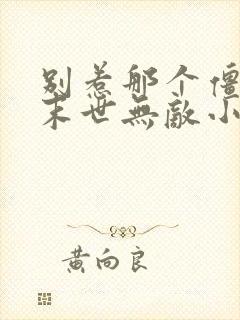 别惹那个僵
末世無敵小
黄向良